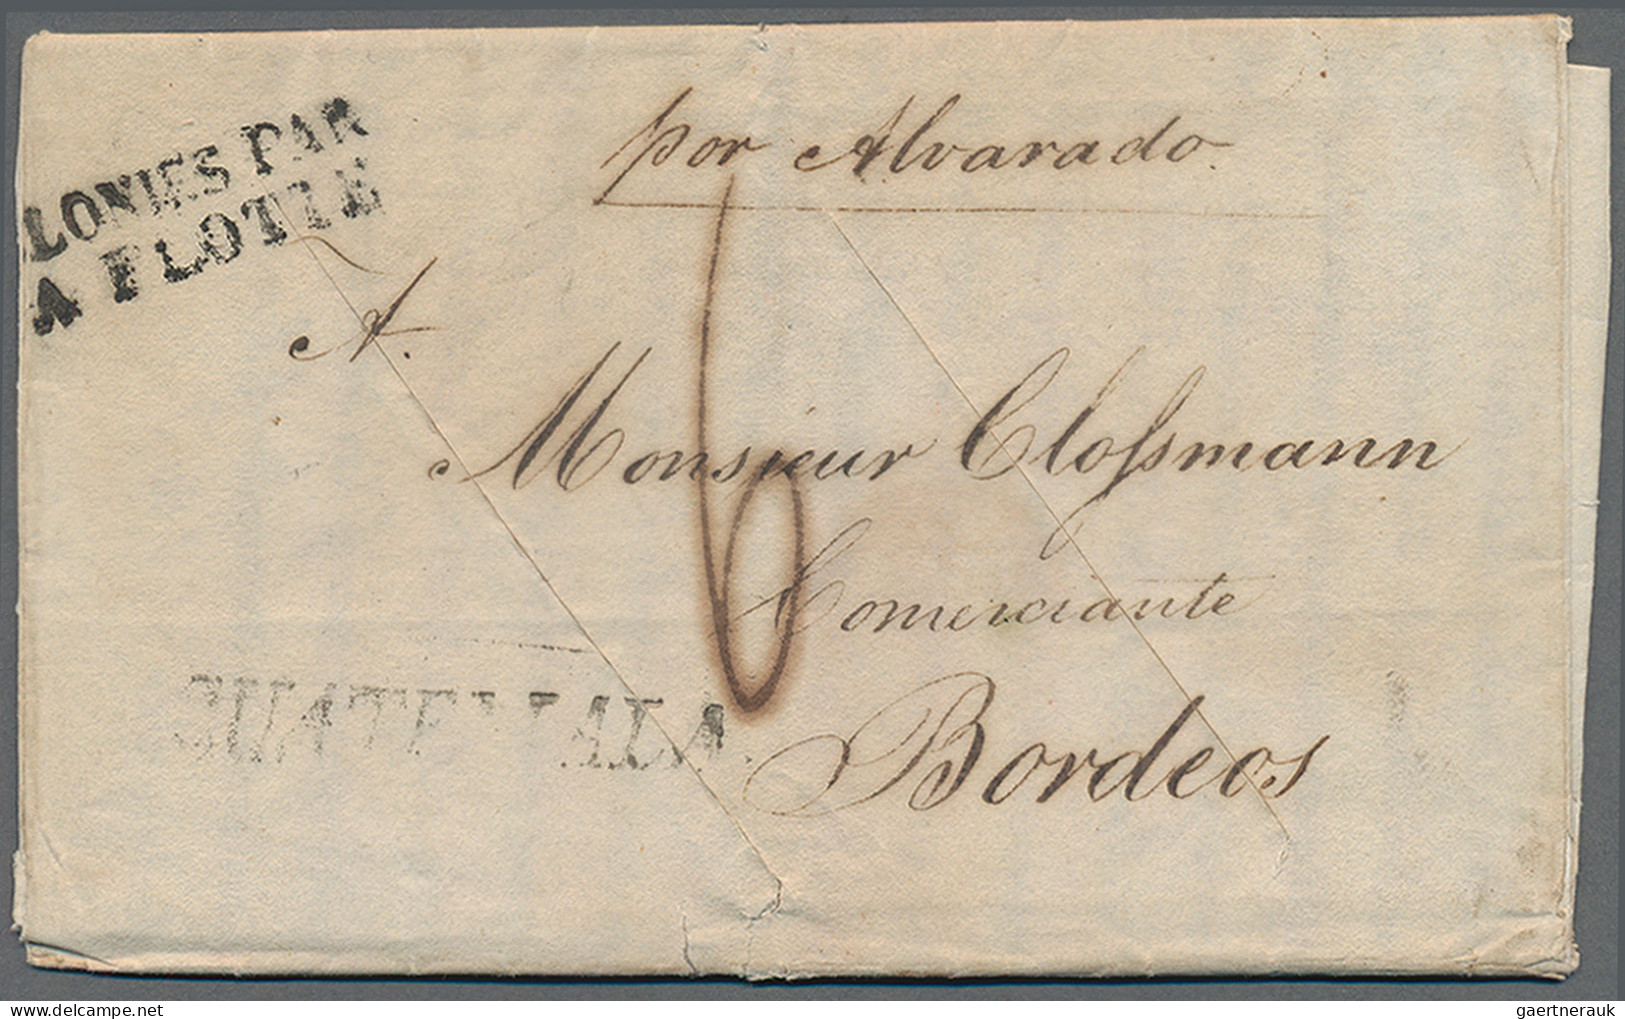 LONIES PAR
A FLOTTE
por Alvarado
A.
Monsieur Cloſsmann
6
Comerciante
GUATEMALA.
Bordeos
gaertnerauk